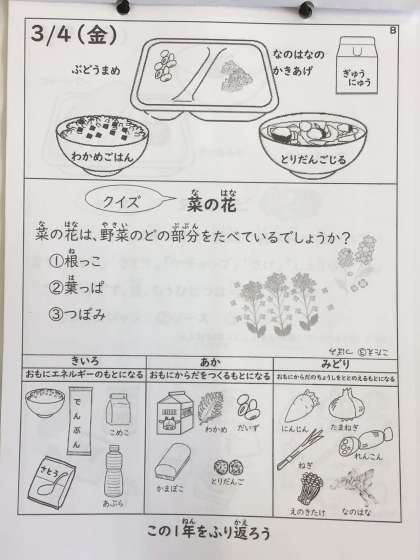 3/4(金)
B
ぶどうまめ
なのはなの
かきあげ
ぎゅう
にゅう
わかめごはん
とりだんごじる
クイズ
菜の花
菜の花は、野菜のどの部分をたべているでしょうか?
①根っこ
②葉っぱ
③つぼみ
きいろ
おもにエネルギーのもとになる
でんぷん
こめこ
さとう
あぶら
あか
おもにからだをつくるもとになる
わかめ
だいず
かまぼこ
とりだんご
みどり
おもにからだのちょうしをととのえるもとになる
にんじん
たまねぎ
ねぎ
れんこん
えのきたけ
なのはな
この1年をふり返ろう